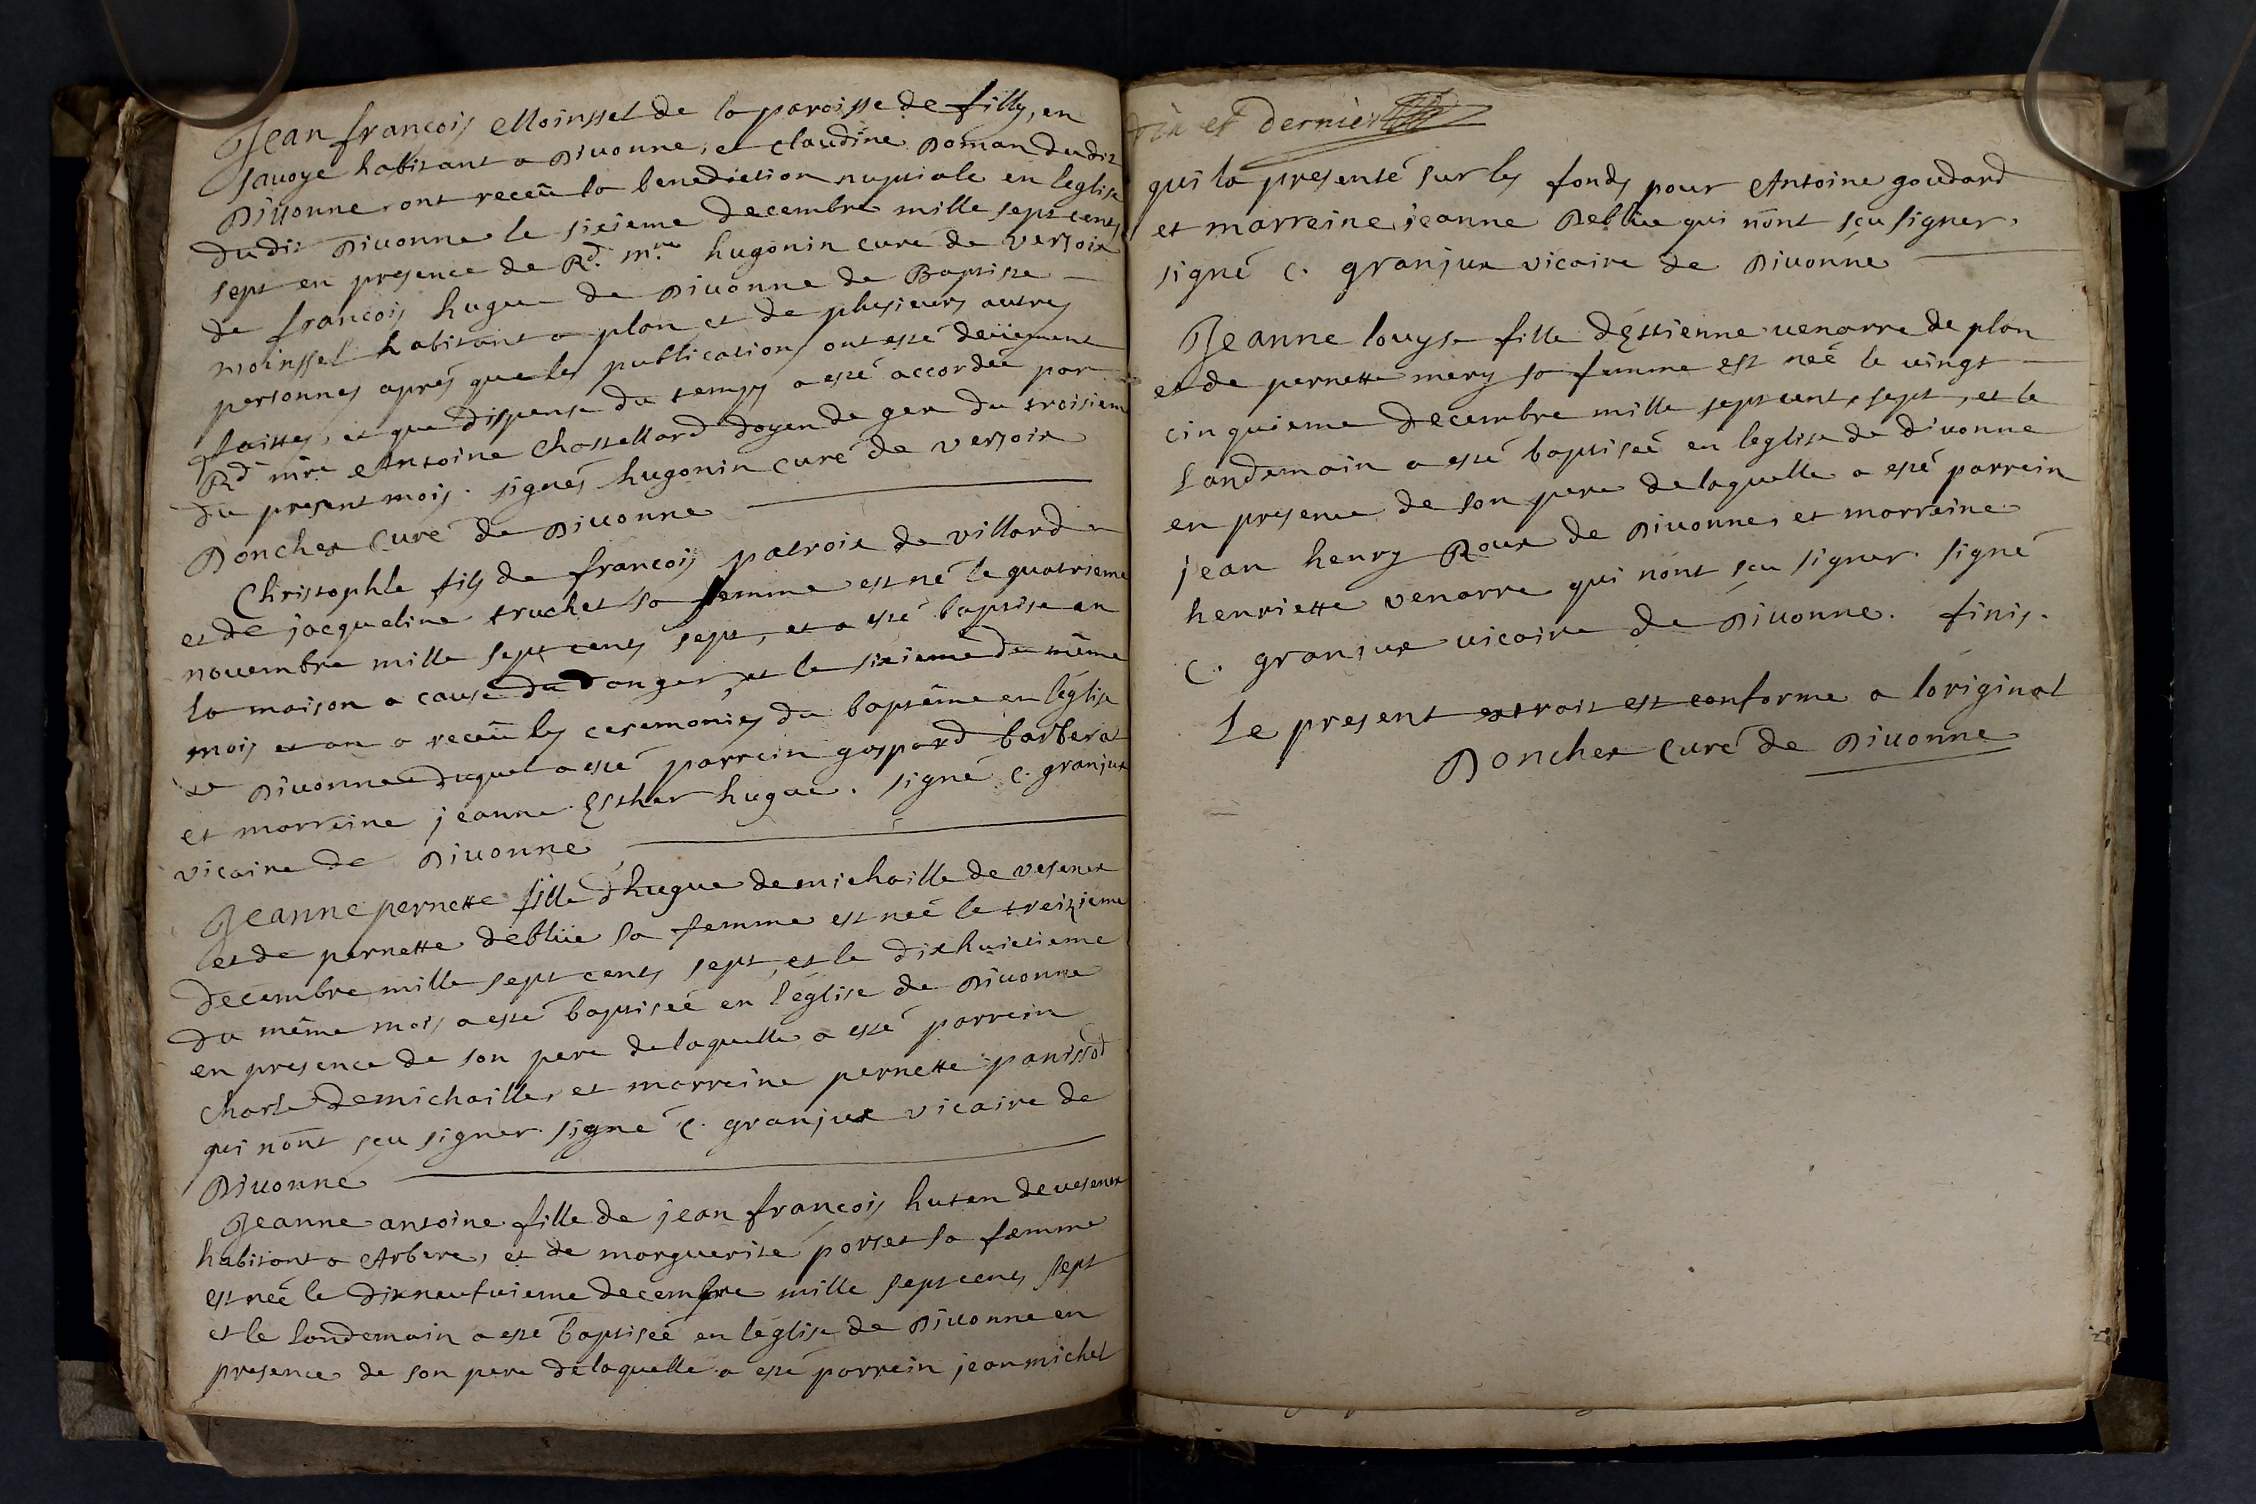 Jean françois Moinssel de la paroisse de filly, en
savoye habitant a Divonne, et claudine Roman dudit
Divonne ont receu la benediction nuptiale en leglise
dudit Divonne le sixieme decembre mille sept cents
sept en presence de Rd. mre hugonin curé de versoix
de françois hugue de Divonne de Baptiste
moinssel habitant a plan et de plusieurs autres
personnes aprés que les publications ont esté deüement
faittes, et que dispense du temps a esté accordée par
Rd mre Antoine Chastellard doyen de gex du troisieme
du present mois. signés hugonin curé de versoix
Donchex curé de Divonne
Christophle fils de françois patroix de villard
et de jacqueline truchet sa femme est né le quatrieme
novembre mille sept cents sept, et a esté baptise en
la maison a cause du danger, et le sixieme du même
mois et an a receu les ceremonies du baptême en léglise
de Divonne duquel a esté parrein gaspard barberat
et marreine jeanne Esther hugue. signé C. granjux
vicaire de Divonne
Jeanne pernette fille d'hugue demichaille de vesenex
et de pernette deblüe sa femme est neé le treizieme
decembre mille sept cents sept, et le dixhuictieme
du même mois a esté baptiseé en l'église de Divonne
en presence de son pere de laquelle a esté parrein
charle demichaille, et marreine pernette panissod
qui n'ont sçu signer. signé C. granjux vicaire de
Divonne
Jeanne antoine fille de jean françois huten de vesenex
habitant a Arbere, et de marguerite portet sa femme
est neé le dixneufvieme decembre mille sept cens sept
et le landemain a esté baptiseé en léglise de Divonne en
presence de son pere de laquelle a esté parrein jean michel
et dernier
qui la presenté sur les fonds pour Antoine goudard
et marreine jeanne Deblüe qui n'ont sçu signer.
signé C. granjux vicaire de Divonne
Jeanne louyse fille d'Estienne venarre de plan
et de pernette mery sa femme est neé le vingt
cinquieme decembre mille sept cent sept, et le
landemain a esté baptiseé en leglise de divonne
en presence de son pere de laquelle a esté parrein
jean henry Roux de Divonne, et marreine
henriette venarre qui n'ont sçu signer. signé
C. granjux vicaire de Divonne. finis.
Le present extrait est conforme a l'original
Donchex curé de Divonne